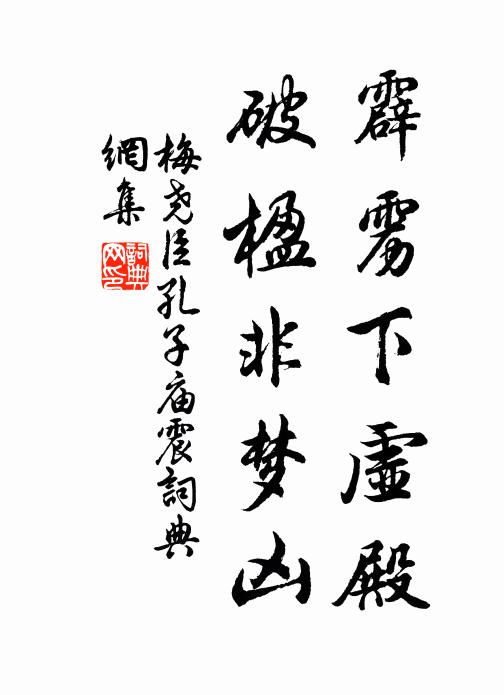 霹雳下虚殿
破楹非梦凶
梅尧臣孔子庙震詞典
網集
詞典
网印